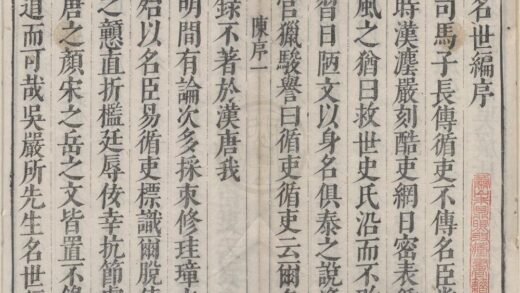 名世編序
司馬子長傳循吏不傳名臣
時漢灋嚴刻酷吏網日密表
風之猶曰救世史氏沿而不
習日陋文以身名俱泰之說
官獵駿譽曰循吏循吏云爾
陳序一
錄不著於漢唐我
明間有論次多採束修珪璋
以名臣易循吏標識爾脫
之戇直折檻廷辱佞幸抗節
唐之顏宋之岳之文皆置不
道而可哉吳嚴所先生名世